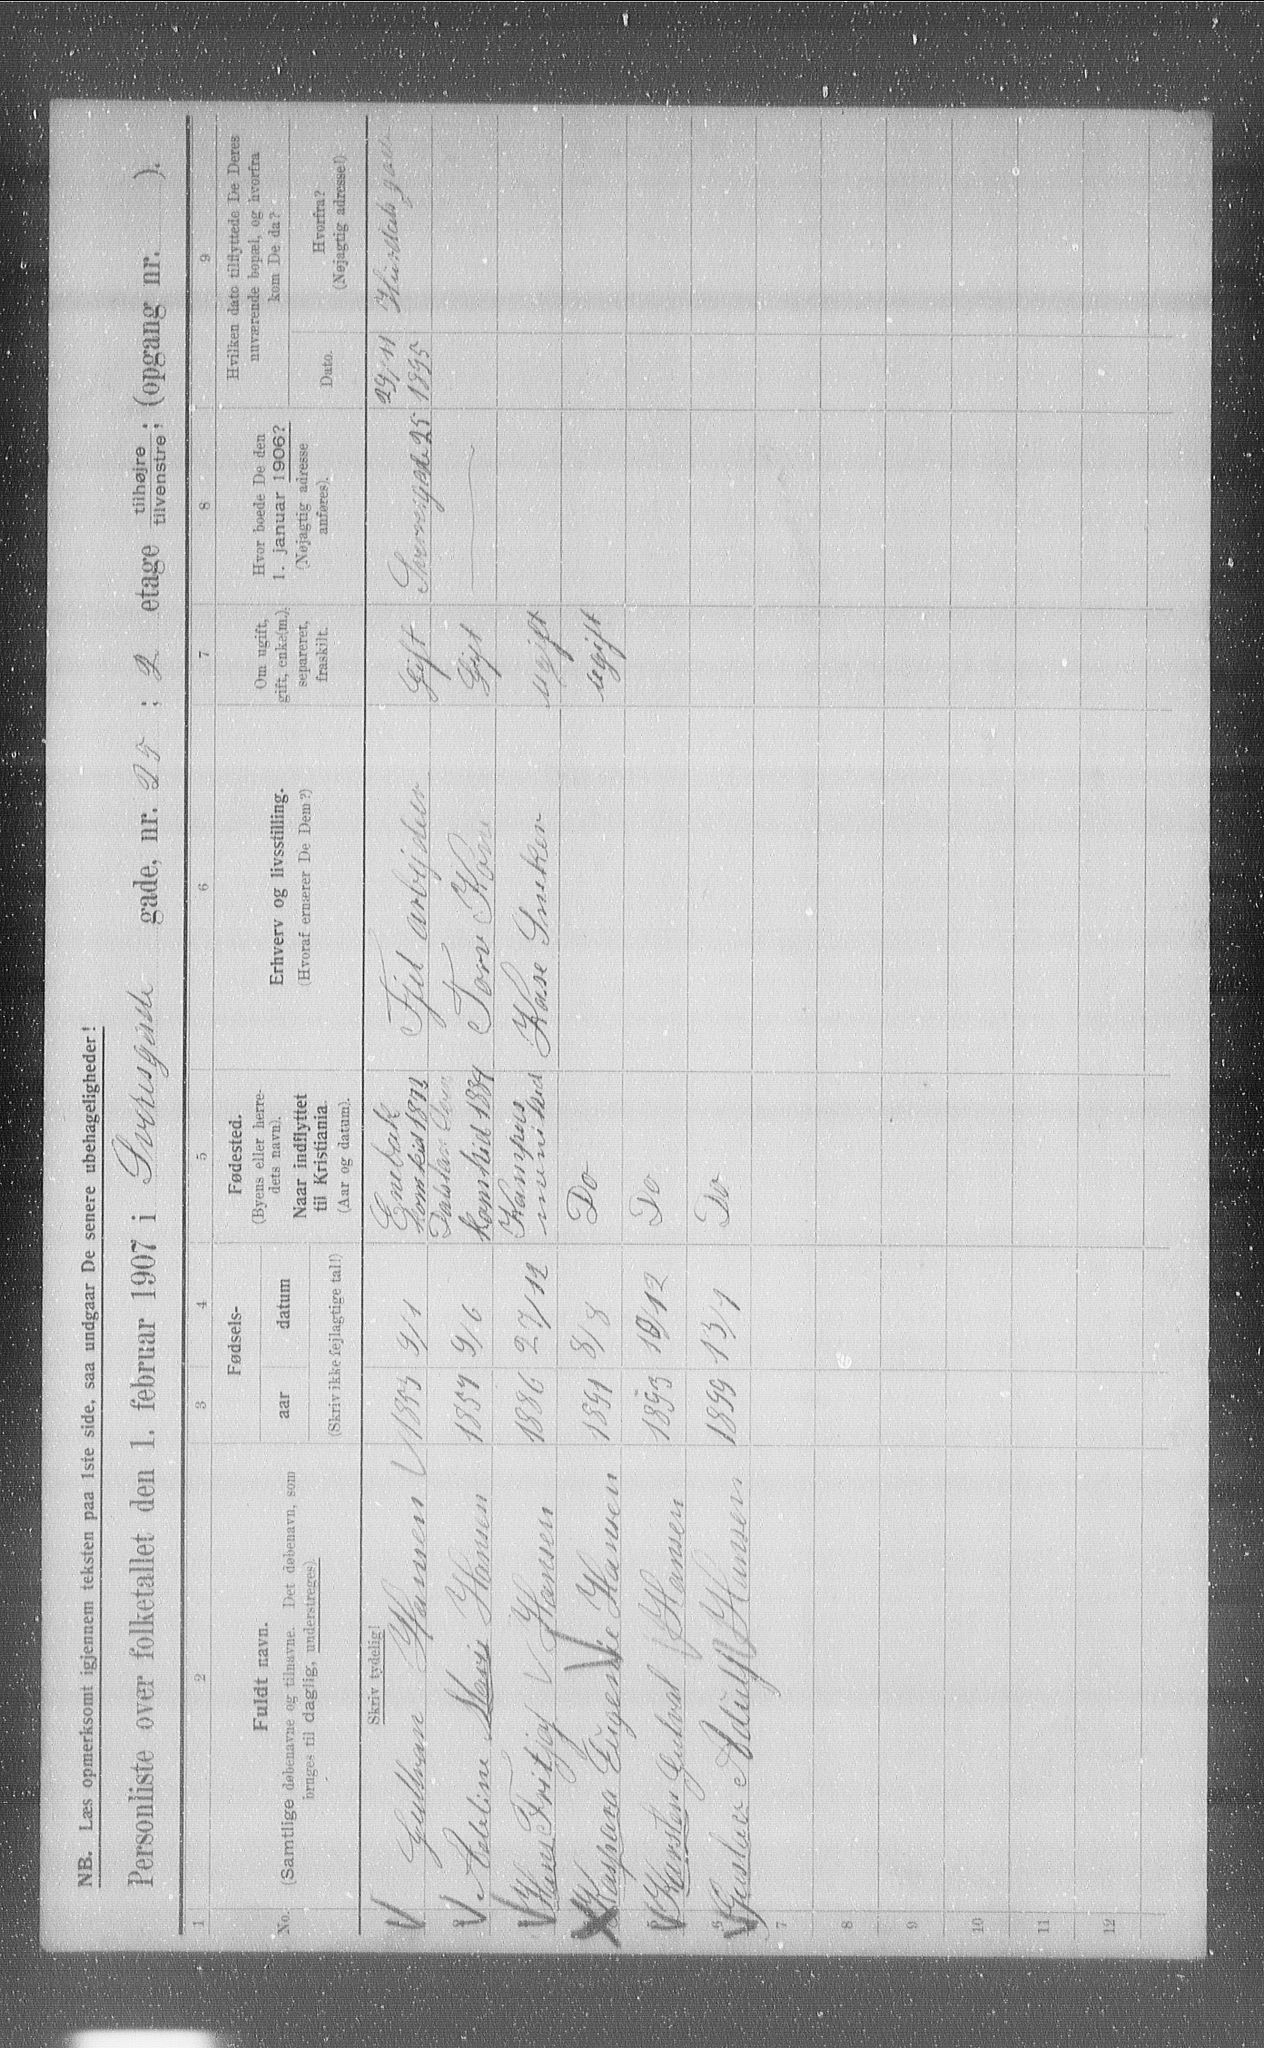 NB. Læs opmerksomt igjennem teksten paa 1ste side, saa undgaar De senere ubehageligheder!
Personliste over folketallet den 1. februar 1907 i Sverresgade gade, nr. 25 ; 2 etage tilhøjre / tilvenstre ; (opgang nr. ).
1 2 3 4 5 6 7 8 9
No.
Fuldt navn.
(Samtlige døbenavne og tilnavne. Det døbenavn, som
bruges til daglig, understreges).
Fødsels-
aar datum
(Skriv ikke fejlagtige tal!)
Fødested.
(Byens eller herre-
dets navn).
Naar indflyttet
til Kristiania.
(Aar og datum).
Erhverv og livsstilling.
(Hvoraf ernærer De Dem?)
Om ugift,
gift, enke(m.),
separeret,
fraskilt.
Hvor boede De den
1. januar 1906?
(Nøjagtig adresse
anføres).
Hvilken dato tilflyttede De Deres
nuværende bopæl, og hvorfra
kom De da?
Dato.
Hvorfra?
(Nøjagtig adresse!)
Skriv tydelig!
Hansen 1853 9/1 Enebak Fjel arbejder Gift Sverresgade 25 29/11
kom hid 1895
Adeline Marie Hansen 9/6 Gift
kom hid
Hans Fritjof Hansen 1886 27/12 Kampens Kase Sneker ugift
Kaspara Eugenie Hansen 1891 8/8 Do ugift
5 Karsten Hansen 1893 /12 Do
6 Gustav Adolf Hansen 1899 13/1 Do
7
8
9
10
11
12